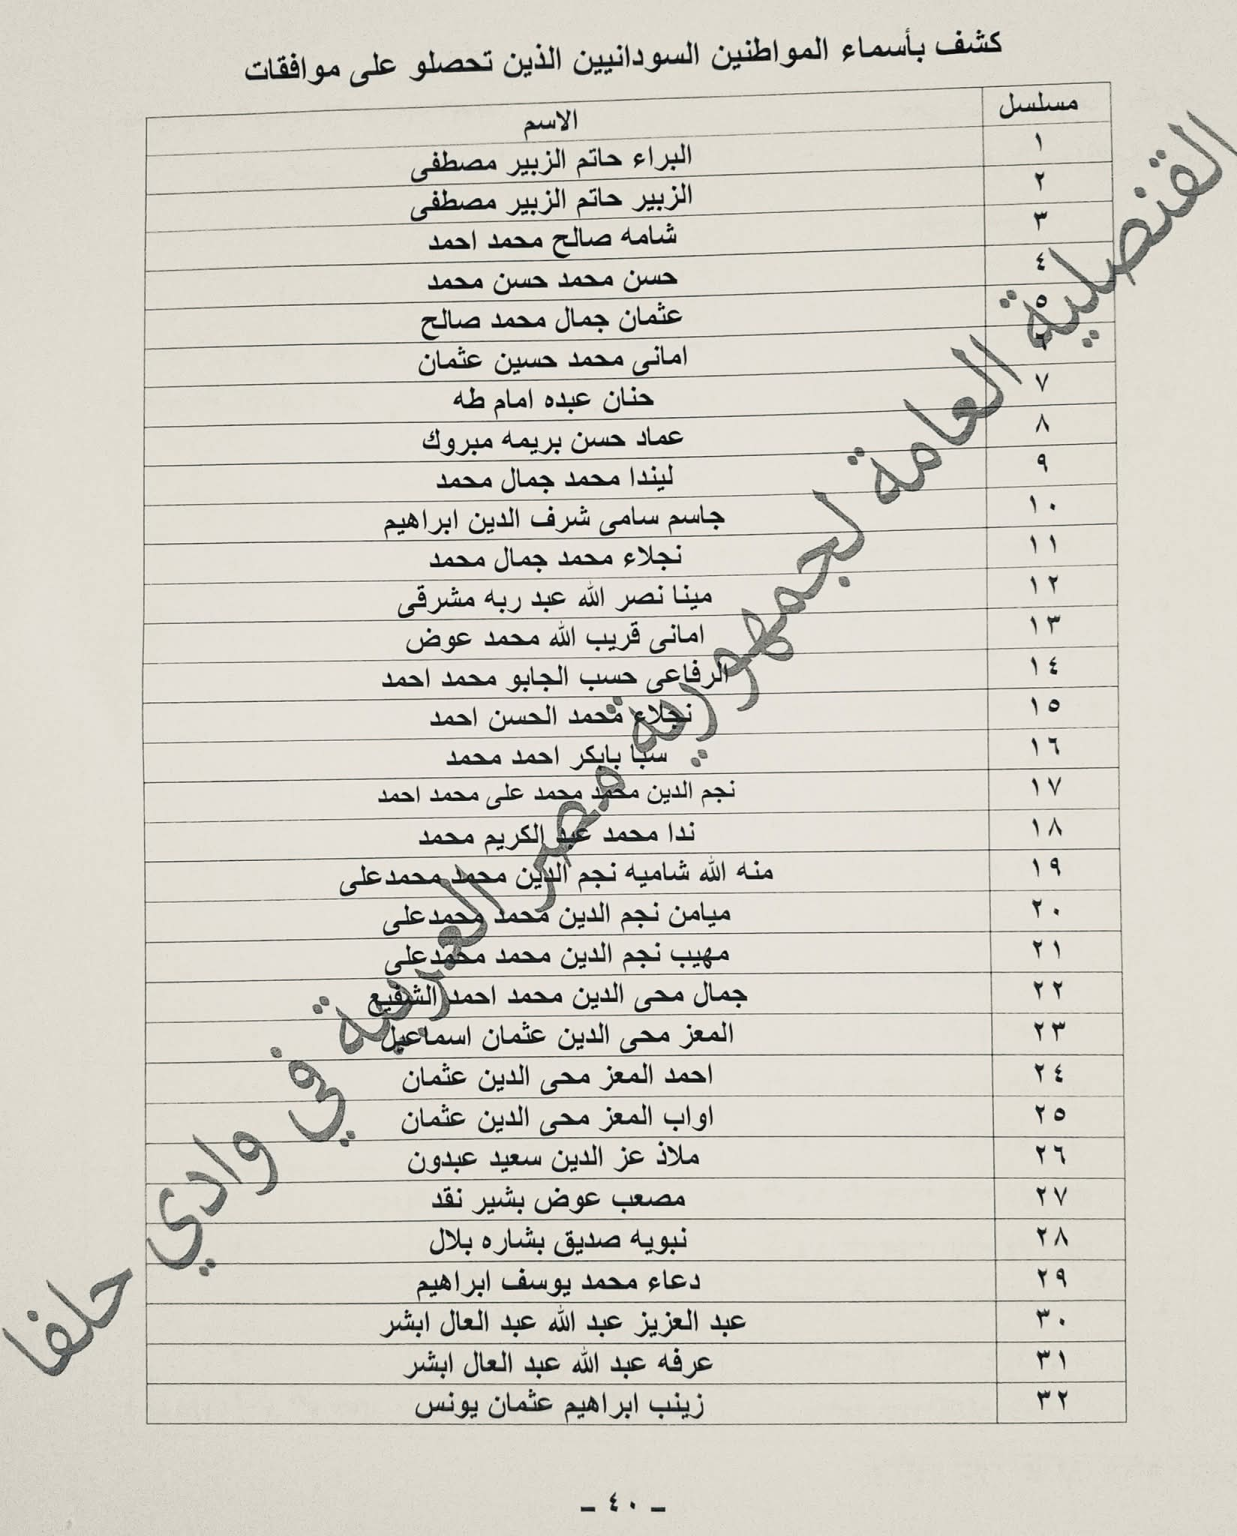 كشف بأسماء المواطنين السودانيين الذين تحصلو على موافقات
مسلسل الاسم
١ البراء حاتم الزبير مصطفى
٢ الزبير حاتم الزبير مصطفى
٣ شامه صالح محمد احمد
٤ حسن محمد حسن محمد
٥ عثمان جمال محمد صالح
٦ امانى محمد حسين عثمان
٧ حنان عبده امام طه
٨ عماد حسن بريمه مبروك
٩ ليندا محمد جمال محمد
١٠ جاسم سامى شرف الدين ابراهيم
١١ نجلاء محمد جمال محمد
١٢ مينا نصر الله عبد ربه مشرقى
١٣ امانى قريب الله محمد عوض
١٤ الرفاعى حسب الجابو محمد احمد
١٥ نجلاء محمد الحسن احمد
١٦ سبا بابكر احمد محمد
١٧ نجم الدين محمد محمد على محمد احمد
١٨ ندا محمد عبد الكريم محمد
١٩ منه الله شاميه نجم الدين محمد محمدعلى
٢٠ ميامن نجم الدين محمد محمدعلى
٢١ مهيب نجم الدين محمد محمدعلى
٢٢ جمال محى الدين محمد احمد الشفيع
٢٣ المعز محى الدين عثمان اسماعيل
٢٤ احمد المعز محى الدين عثمان
٢٥ اواب المعز محى الدين عثمان
٢٦ ملاذ عز الدين سعيد عبدون
٢٧ مصعب عوض بشير نقد
٢٨ نبويه صديق بشاره بلال
٢٩ دعاء محمد يوسف ابراهيم
٣٠ عبد العزيز عبد الله عبد العال ابشر
٣١ عرفه عبد الله عبد العال ابشر
٣٢ زينب ابراهيم عثمان يونس
القنصلية العامة لجمهورية مصر العربية في وادي حلفا
- ٤٠ -